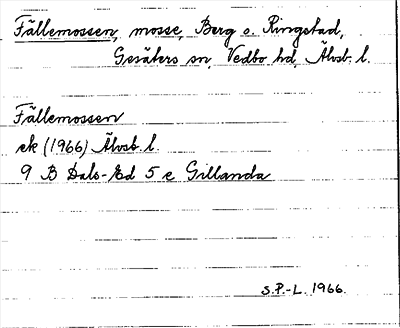 Fällemossen, mosse, Berg o. Ringstad,
Gesäters sn, Vedbo hd, Älvsb. l.
Fällemossen
ek (1966) Älvsb. l.
9 B Dals-Ed 5 e Gillanda
S.P.-L. 1966.